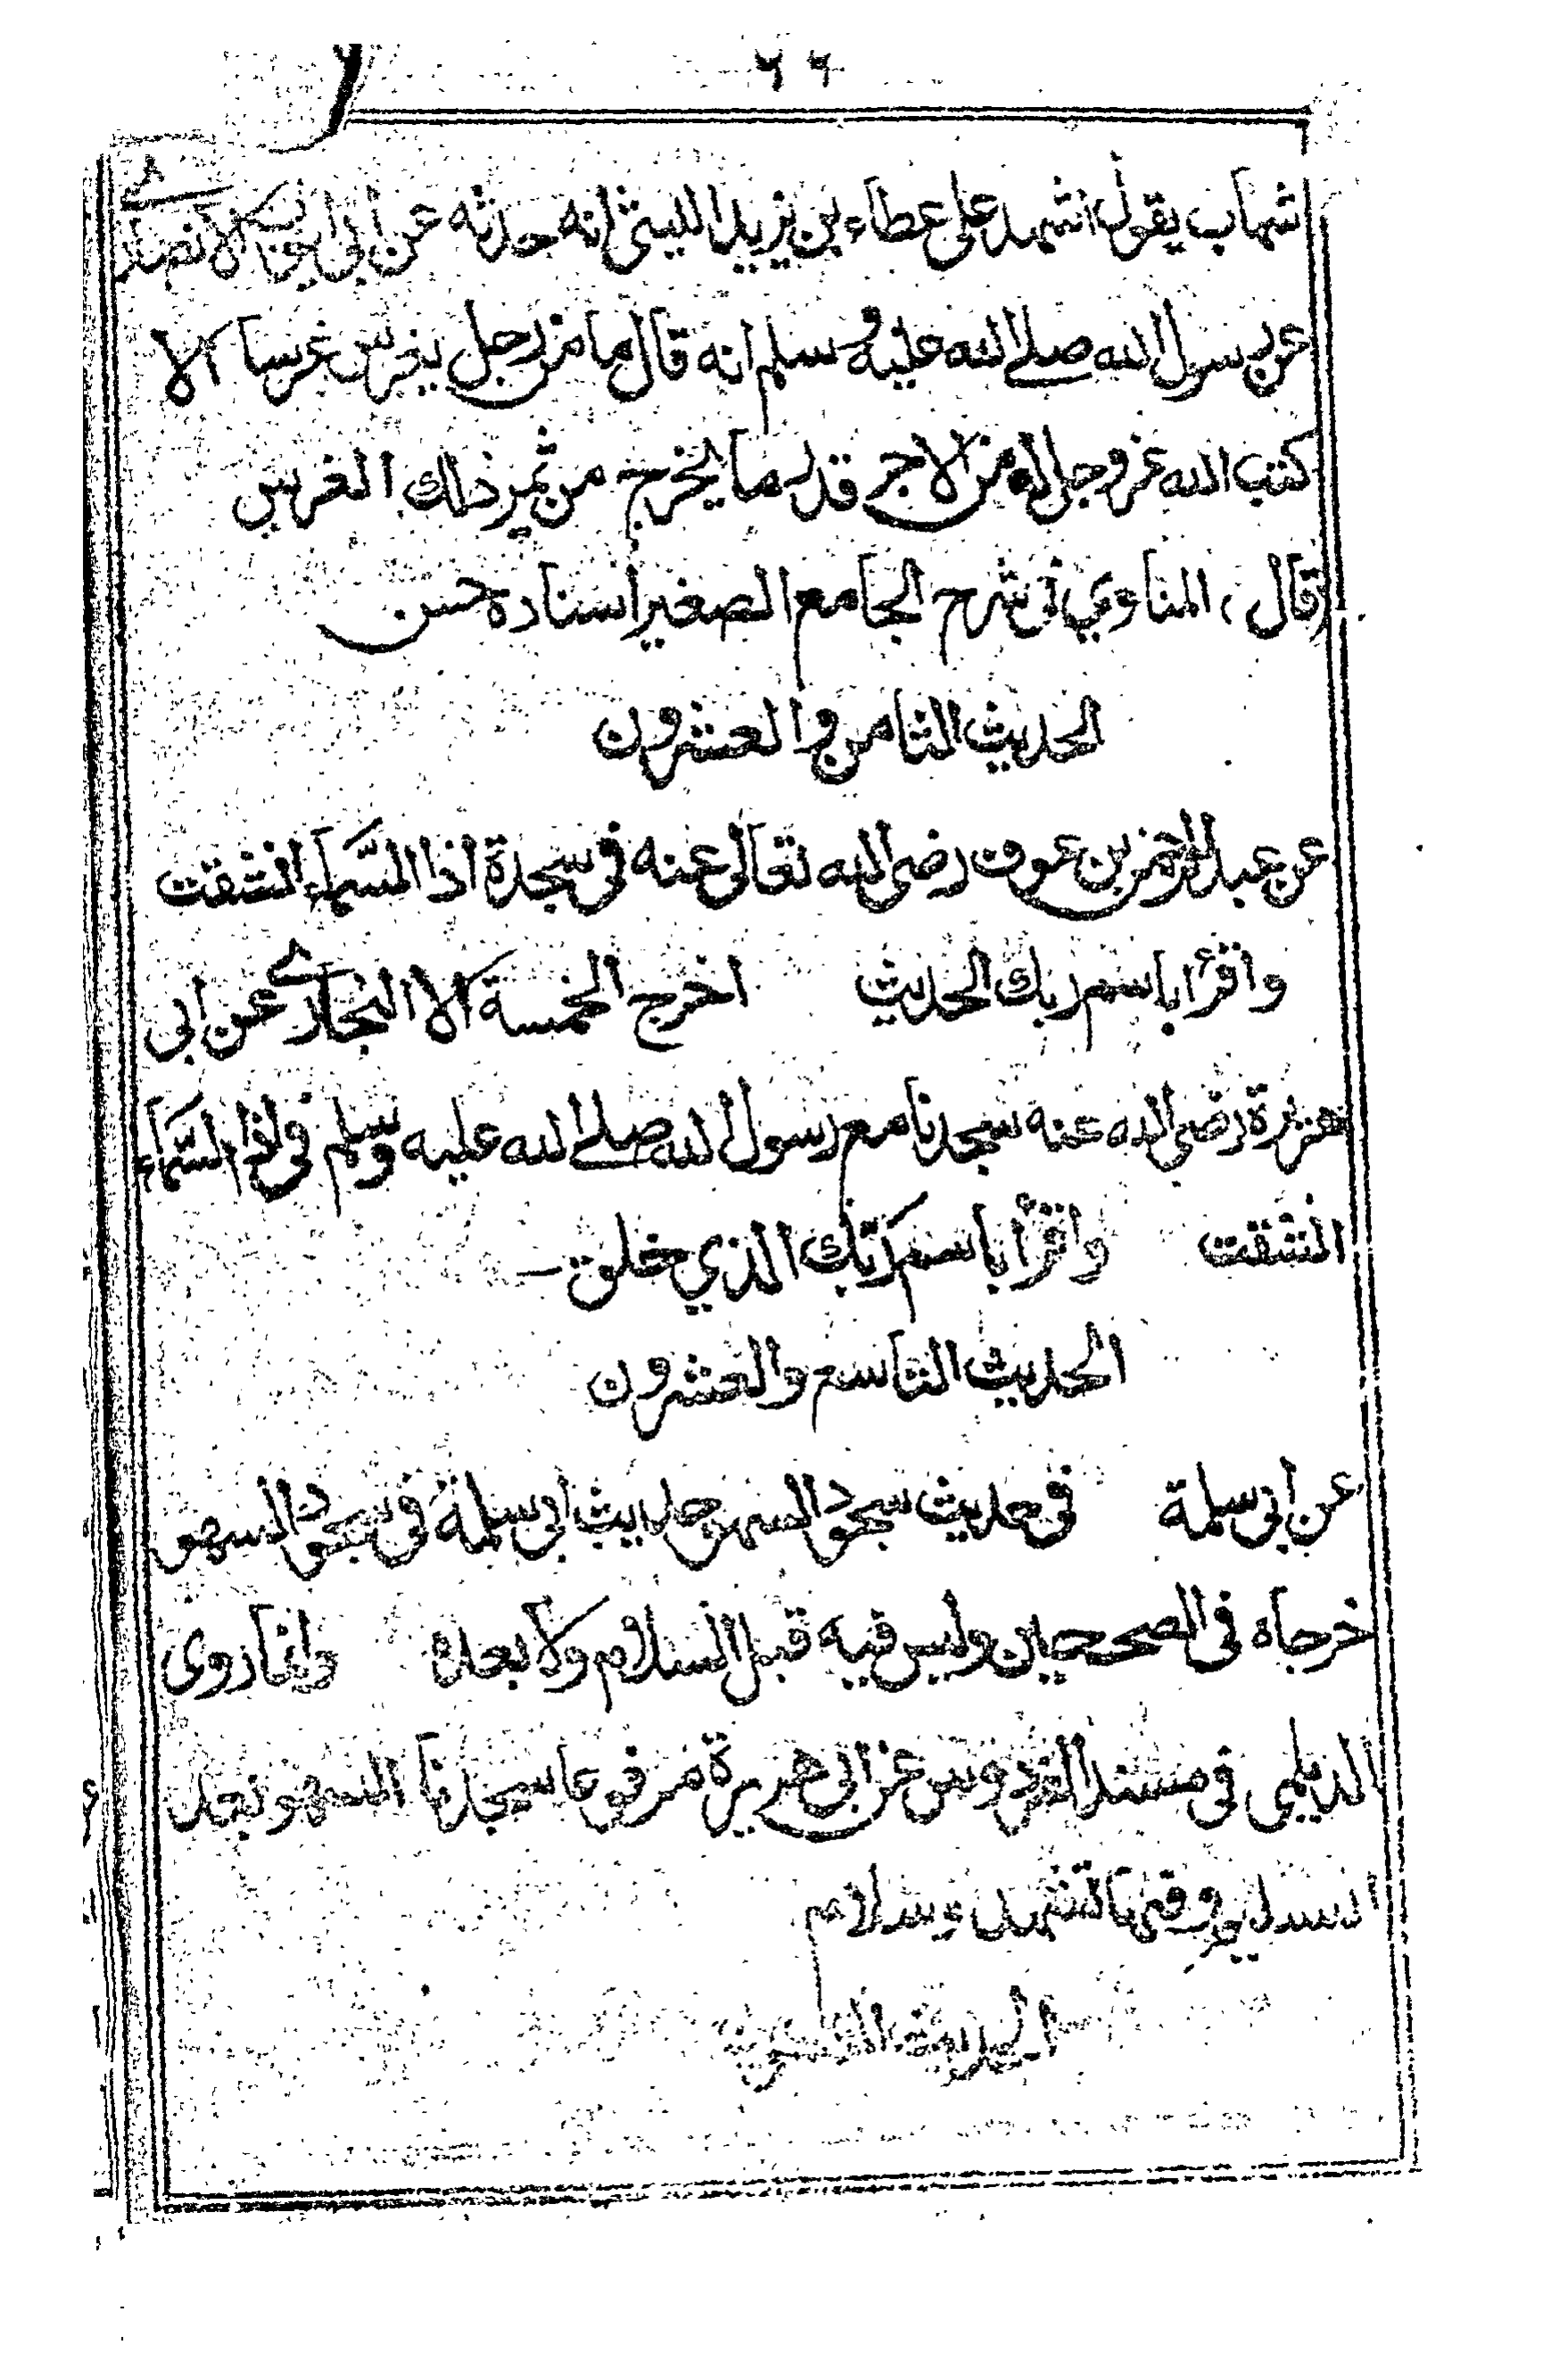 ٦٦
شهاب يقول اشهد على عطاء بن يزيد الليثى انه حدثه عن ابى ايوب الانصارے
عن رسول الله صلے الله عليه وسلم انه قال ما من رجل يغرس غرسا الا
كتب الله عز وجل له من الاجر قدر ما يخرج من ثمر ذلك الغرس
(قال) المناوي فى شرح الجامع الصغير اسناده حسن
الحديث الثامن والعشرون
عن عبد الرحمن بن عوف رضى الله تعالى عنه فى سجدة اذا السَّمآء انشقت
واقرأ باسم ربك الحديث اخرج الخمسة الا البخارے عن ابى
هريرة رضى الله عنه سجدنا مع رسول الله صلے الله عليه وسلم فى اذا السَّمآء
انشقت واقرأ باسم ربّك الذي خلق
الحديث التاسع والعشرون
عن ابى سلمة فى حديث سجود السهو حديث ابى سلمة فى سجود السهو
خرجاه فى الصحيحين وليس فيه قبل السلام ولا بعده وانما روى
الديلمى فى مسند الفردوس عن ابى هريرة مرفوعا سجدتا السهو بعد
التسليم وفيهما تشهد وسلام